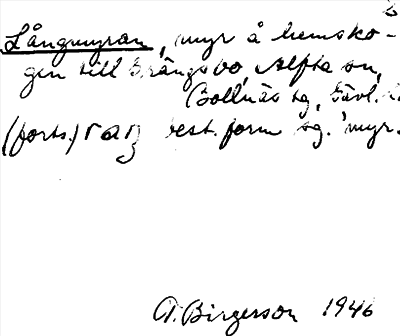 Långmyran, myr å hemsko-
gen till Grängsbo, Alfta sn,
Bollnäs tg, Gävl. l.
(forts.) raŋ best. form sg. 'myr.
T. Birgerson 1946